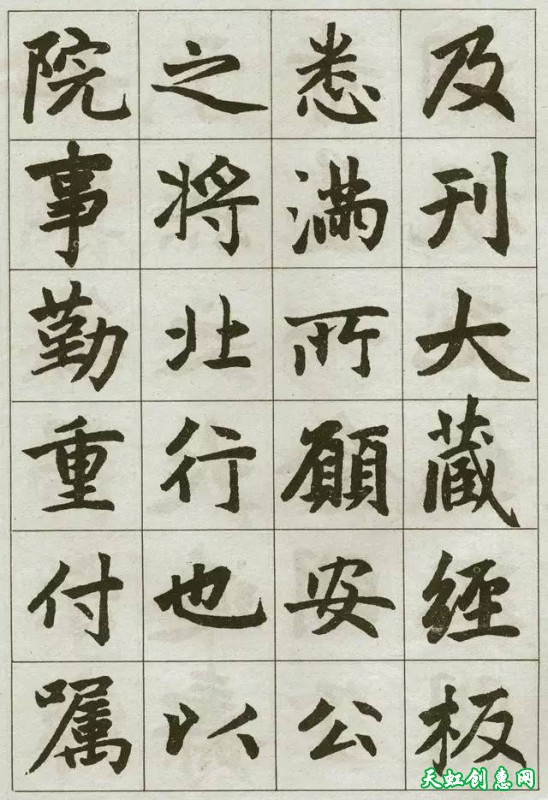 及刊大蔵經板
悉滿所願安公
之將北行也以
院事勤重付嘱
天虹创惠网